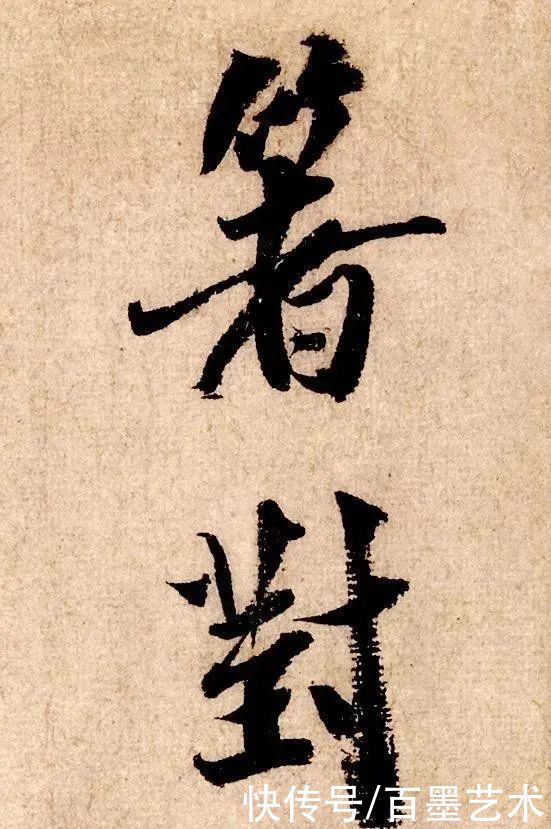 箸
對
快传号/百墨艺术